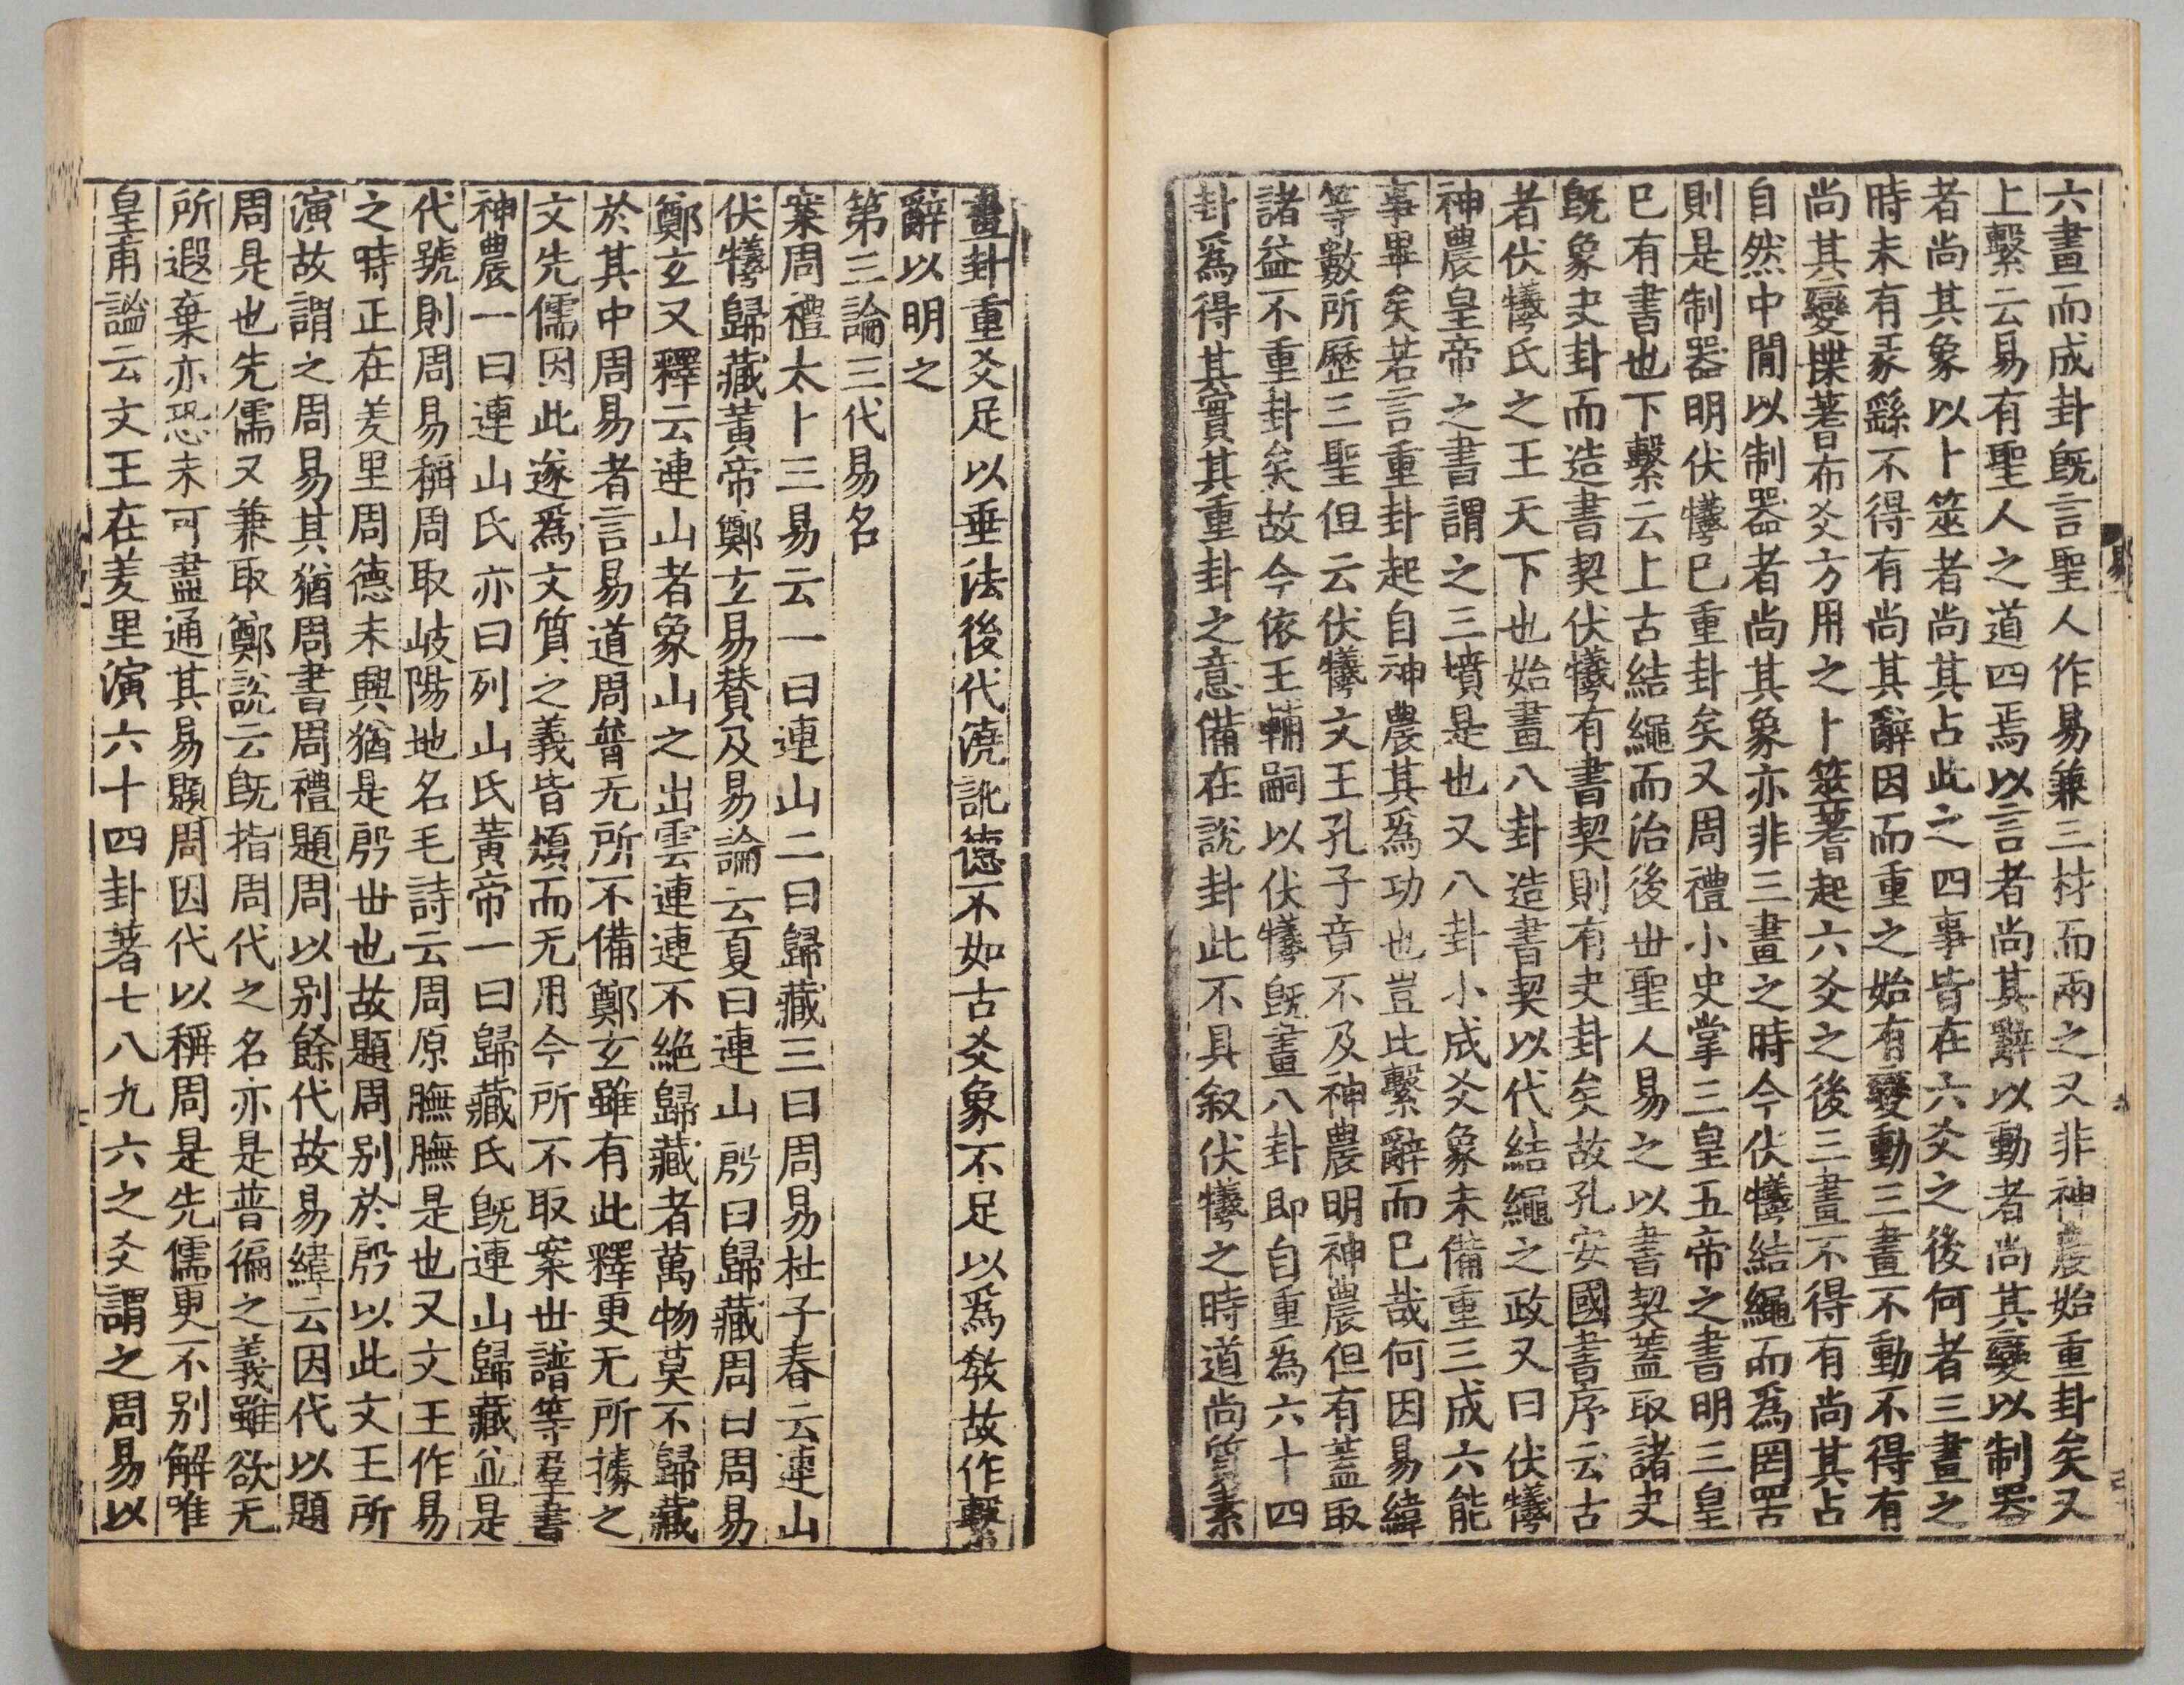 六畫而成卦旣言聖人作易兼三材而兩之又非神農始重卦矣又
上繫云易有聖人之道四焉以言者尚其辭以動者尚其變以制器
者尚其象以卜筮者尚其占此之四事皆在六爻之後何者三畫之
時未有彖繇不得有尚其辭因而重之始有變動三畫不動不得有
尚其變揲蓍布爻方用之卜筮蓍起六爻之後三畫不得有尚其占
自然中閒以制器者尚其象亦非三畫之時今伏犧結繩而爲罔罟
則是制器明伏犧已重卦矣又周禮小史掌三皇五帝之書明三皇
已有書也下繫云上古結繩而治後丗聖人易之以書契蓋取諸夬
旣象夬卦而造書契伏犧有書契則有夬卦矣故孔安國書序云古
者伏犧氏之王天下也始畫八卦造書契以代結繩之政又曰伏犧
神農皇帝之書謂之三墳是也又八卦小成爻象未備重三成六能
事畢矣若言重卦起自神農其爲功也豈比繫辭而已哉何因易緯
等數所歷三聖但云伏犧文王孔子竟不及神農明神農但有蓋取
諸益不重卦矣故今依王輔嗣以伏犧旣畫八卦即自重爲六十四
卦爲得其實其重卦之意備在說卦此不具叙伏犧之時道尚質素
畫卦重爻足以垂法後代澆訛德不如古爻象不足以爲敎故作繫
辭以明之
第三論三代易名
案周禮太卜三易云一曰連山二曰歸藏三曰周易杜子春云連山
伏犧歸藏黃帝鄭玄易賛及易論云夏曰連山殷曰歸藏周曰周易
鄭玄又釋云連山者象山之出雲連連不絶歸藏者萬物莫不歸藏
於其中周易者言易道周普无所不備鄭玄雖有此釋更无所據之
文先儒因此遂爲文質之義皆煩而无用今所不取案丗譜等羣書
神農一曰連山氏亦曰列山氏黃帝一曰歸藏氏旣連山歸藏並是
代號則周易稱周取岐陽地名毛詩云周原膴膴是也又文王作易
之時正在羑里周德未興猶是殷丗也故題周别於殷以此文王所
演故謂之周易其猶周書周禮題周以别餘代故易緯云因代以題
周是也先儒又兼取鄭說云旣指周代之名亦是普徧之義雖欲无
所遐棄亦恐未可盡通其易題周因代以稱周是先儒更不别解唯
皇甫謐云文王在羑里演六十四卦著七八九六之爻謂之周易以